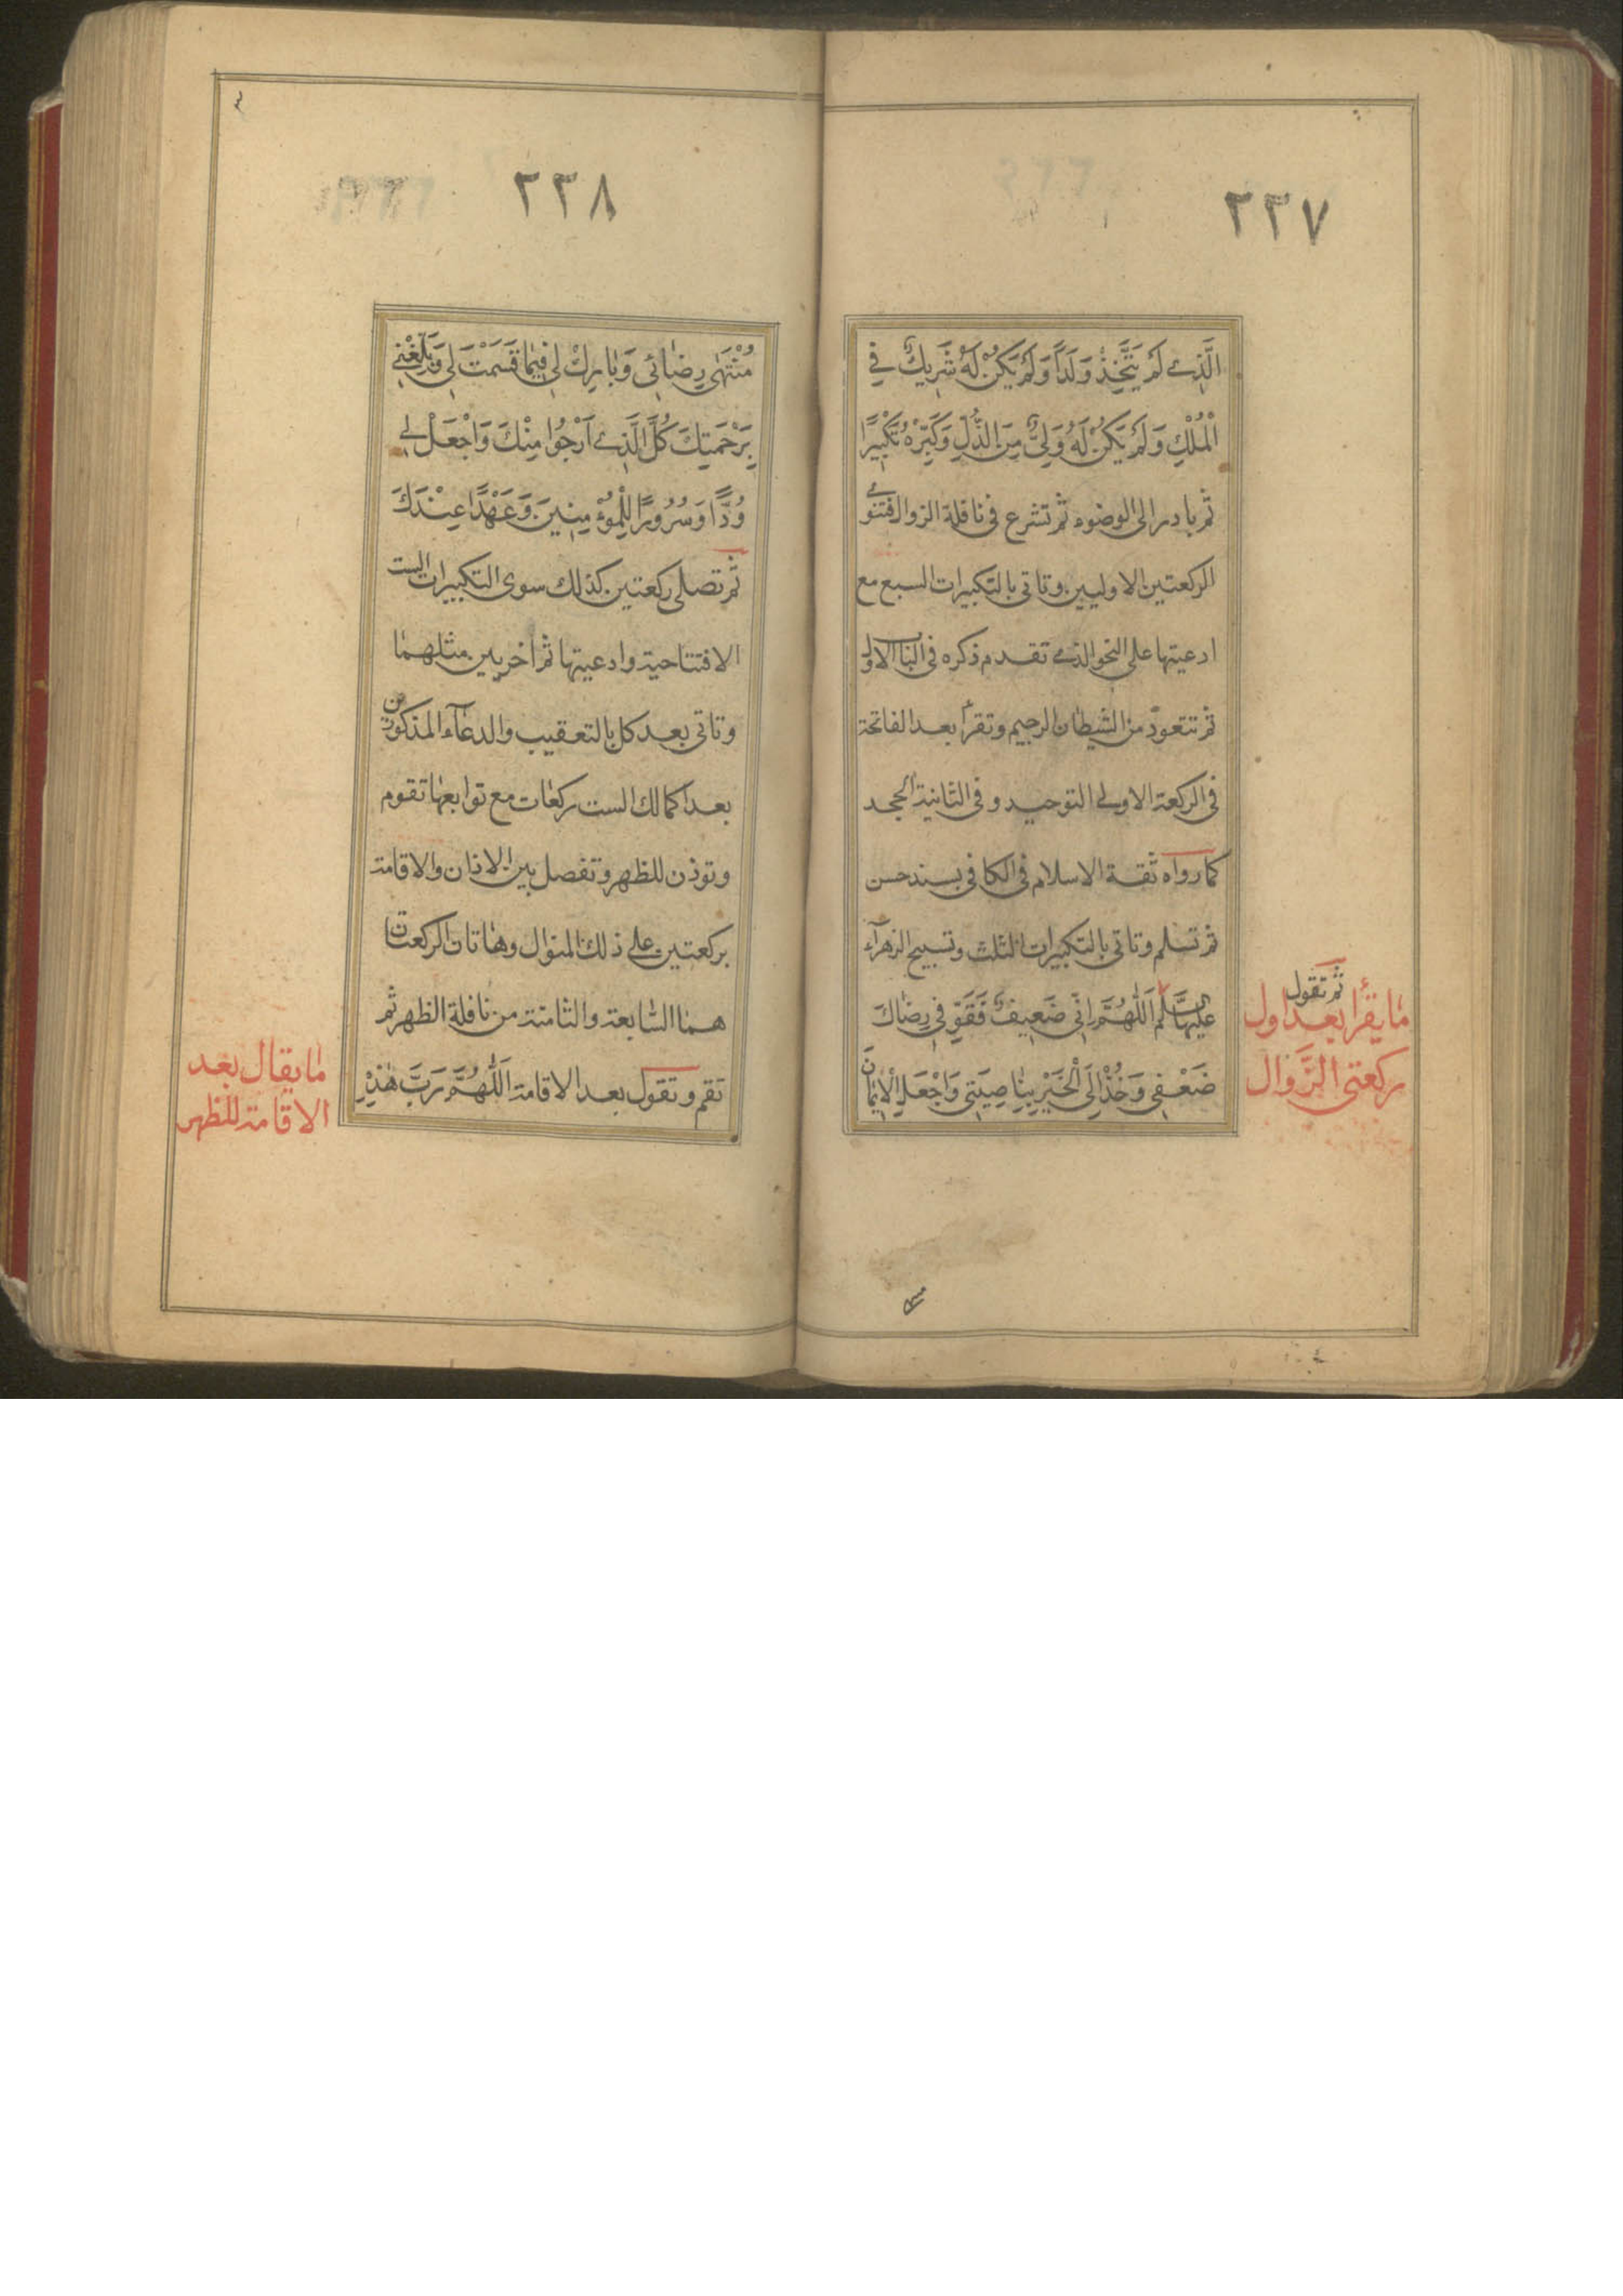 ٢٣٧
الَّذِي لَمْ يَتَّخِذْ وَلَدًا وَلَمْ يَكُنْ لَهُ شَرِيكٌ فِي
الْمُلْكِ وَلَمْ يَكُنْ لَهُ وَلِيٌّ مِنَ الذُّلِّ وَكَبِّرْهُ تَكْبِيرًا
ثم بادر الى الوضوء ثم تشرع في نافلة الزوال فتنوي
الركعتين الاوليين وتاتي بالتكبيرات السبع مع
ادعيتها على النحو الذي تقدم ذكره في الباب الاول
ثم تتعوذ من الشيطان الرجيم وتقرأ بعد الفاتحة
في الركعة الاولى التوحيد وفي الثانية الجحد
كما رواه ثقة الاسلام في الكافي بسند حسن
ثم تسلم وتاتي بالتكبيرات الثلث وتسبيح الزهرآء
عليها السلم اَللّٰهُمَّ اِنِّي ضَعِيفٌ فَقَوِّ فِي رِضَاكَ
ضَعْفِي وَخُذْ اِلَى الْخَيْرِ بِنَاصِيَتِي وَاجْعَلِ الْاِيمَانَ
ثم تقول
مايقرأ بعد اول
ركعتي الزَّوال
٢٣٨
مُنْتَهٰى رِضَائِي وَبَارِكْ لِي فِيمَا قَسَمْتَ لِي وَبَلِّغْنِي
بِرَحْمَتِكَ كُلَّ الَّذِي اَرْجُوا مِنْكَ وَاجْعَلْ لِي
وُدًّا وَسُرُورًا لِلْمُؤْمِنِينَ وَعَهْدًا عِنْدَكَ
ثم تصلي ركعتين كذلك سوى التكبيرات الست
الافتتاحية وادعيتها ثم اخريين مثلهما
وتاتي بعد كل بالتعقيب والدعآء المذكورين
بعد اكمالك الست ركعات مع توابعها تقوم
وتوذن للظهر وتفصل بين الاذان والاقامة
بركعتين على ذلك المنوال وهاتان الركعتان
هما السابعة والثامنة من نافلة الظهر ثم
تقم وتقول بعد الاقامة اَللّٰهُمَّ رَبَّ هٰذِهِ
مايقال بعد
الاقامة للظهر